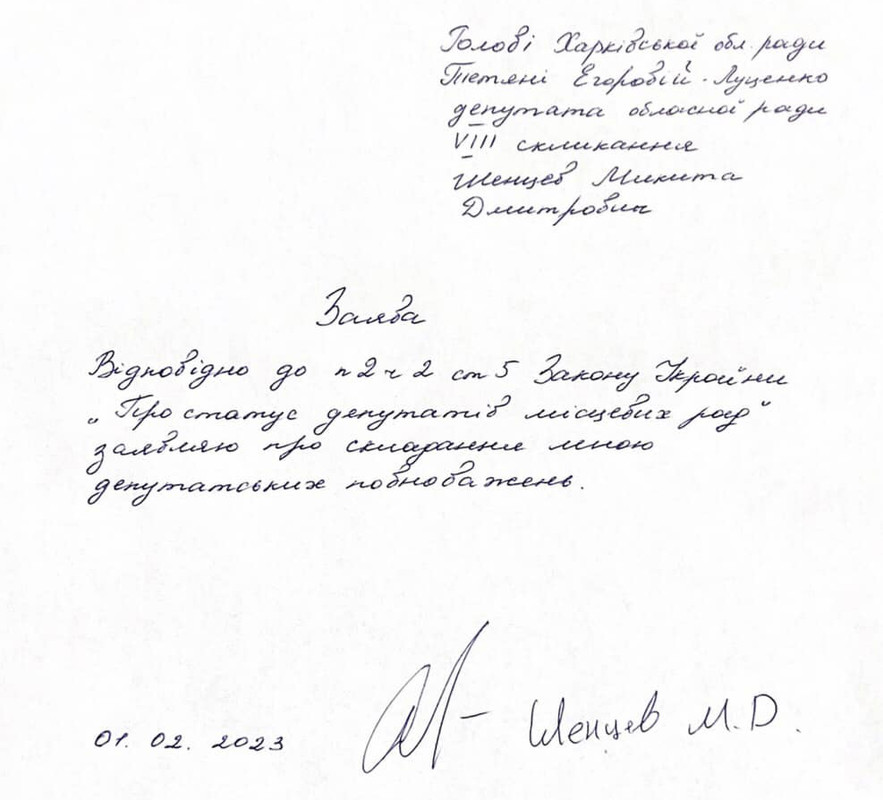 Голові Харківської обл. ради
Тетяні Егоровій-Луценко
депутата обласної ради
VIII скликання
Шенцев Микита
Дмитрович
Заява
Відповідно до п 2 ч 2 ст 5 Закону Україйни
„Про статус депутатів місцевих рад“
заявляю про складання мною
депутатських повноважень.
01. 02. 2023 Шенцев М.D.